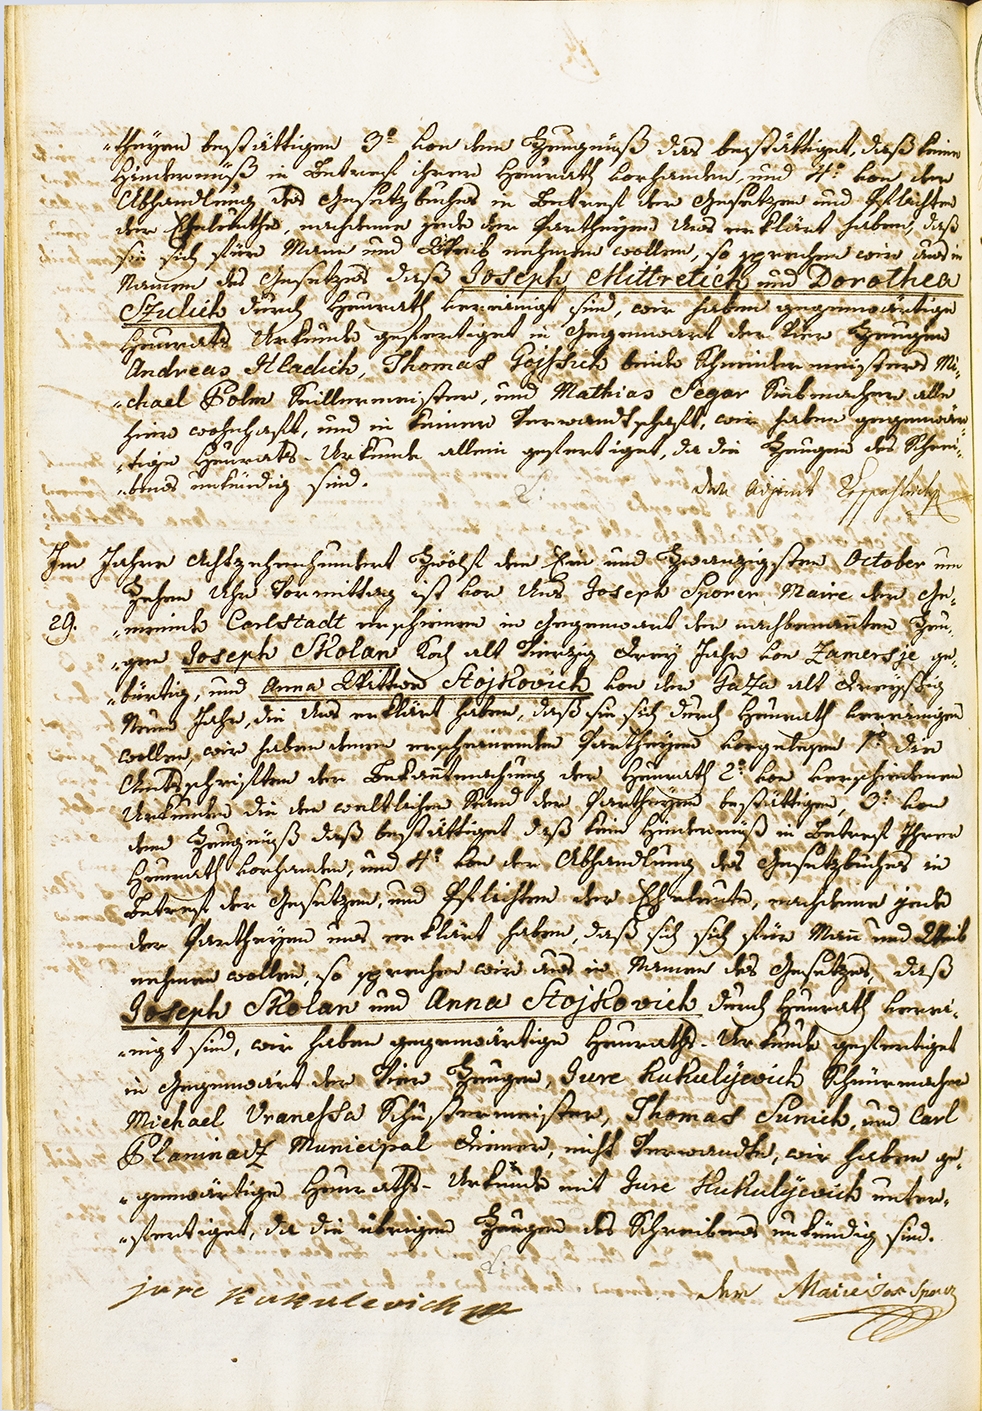 -theyen bestättigen 3º von dem Zeugnüß das bestättiget, daß keine
Hindernüß in Betref ihrer Heurath vorhanden, und 4º von der
Abhandlung des Gesetzbuches in Betref der Gesetzen und Pflichten
der Eheleuthe, nachdeme jede der Partheyen uns erklärt haben, daß
sie sich für Mann und Weib nehmen wollen, so sprechen wir aus in
Namen des Gesetzes daß Joseph Mittretich und Dorothea
Szulich durch Heurath vereinigt sind, wir haben gegenwärtige
Heuraths Urkunde gefertiget in Gegenwart der vier Zeugen
Andreas Hladich, Thomas Gojssich beide Schneidermeister Mi-
-chael Polm Seillermeister, und Mathias Segar Siebmacher alle
hier wohnhaft, und in keiner Verwandtschaft, wir haben gegenwär-
-tige Heuraths-Urkunde allein gefertiget, da die Zeugen des Schrei-
-bens unkündig sind.
der Adjunct
Im Jahre Achtzehenhundert Zwölf den Ein und Zwanzigsten October um
Zehen Uhr Vormittag ist vor Uns Joseph Sporer Maire der Ge-
29. -meinde Carlstadt erschienen in Gegenwart der nachbenannten Zeu-
-gen Joseph Skolan Koch alt Vierzig Drey Jahr von Zamersje ge-
-bürtig, und Anna Wittwe Stojkovich von der Gaza alt Dreyßig
Neun Jahr, die Uns erklärt haben, daß sie sich durch Heurath vereinigen
wollen, wir haben denen erscheinenden Partheyen vorgelegen 1º die
Amtsschriften der Bekanntmachung der Heurath 2º von verschiedenen
Urkunden die den weltlichen Stand der Partheyen bestättigen, 3º von
dem Zeugnüß daß bestättiget daß kein Hindernüß in Betref Ihrer
Heurath vorhanden, und 4º von der Abhandlung des Gesetzbuches in
Betref der Gesetzen, und Pflichten der Eheleute, nachdeme jede
der Partheyen uns erklärt haben, daß sich sich für Mann und Weib
nehmen wollen, so sprechen wir aus in Namen des Gesetzes, daß
Joseph Skolan und Anna Stojkovich durch Heurath verei-
-nigt sind, wir haben gegenwärtige Heuraths-Urkunde gefertiget
in Gegenwart der vier Zeugen, Jure Kukulyevich Schnürmacher
Michael Vranessa Schustermeister, Thomas Sunich, und Carl
Planinadz Municipal Diener, nicht Verwandte, wir haben ge-
-genwärtige Heuraths-Urkunde mit Jure Kukulyevich unter-
-fertiget, da die übrigen Zeugen des Schreibens unkündig sind.
jure Kukulevich
der Maire Jos Sporer